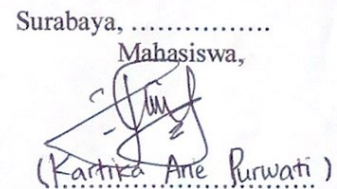 Surabaya, ................
Mahasiswa,
(Kartika Arie Purwati)